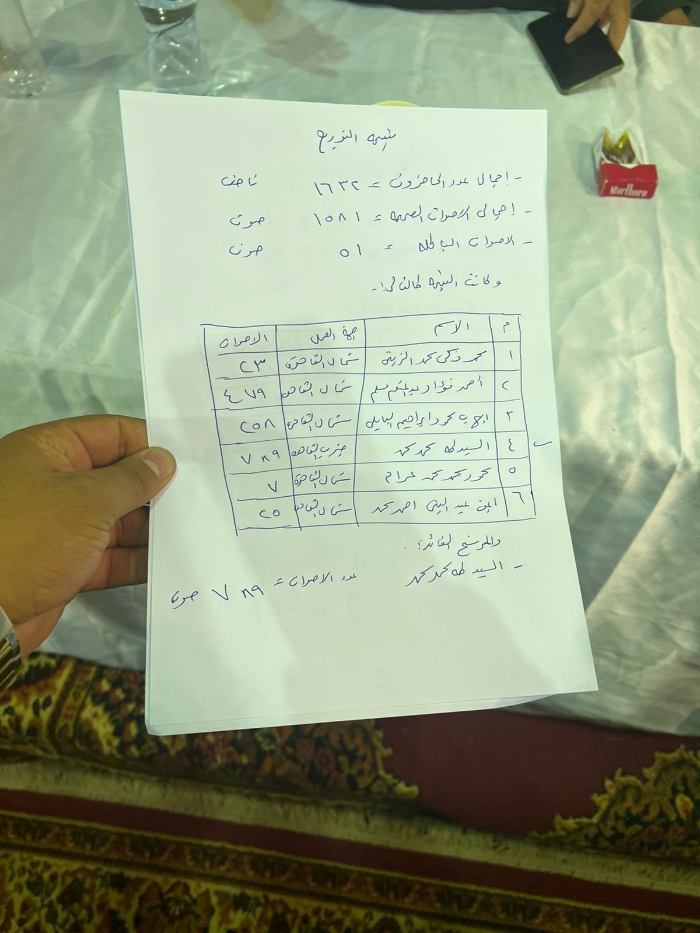 نتيجة التوزيع
- إجمالى عدد الحاضرون = ١٦٣٢ ناخب
- إجمالى الاصوات الصحيحه = ١٥٨١ صوت
- الاصوات الباطله = ٥١ صوت
وكانت النتيجه كالتالى:-
م الاسم جهة العمل الاصوات
١ محمد زكى محمد شمال القاهرة ٢٣
٢ احمد فؤاد عبدالمنعم مسلم شمال القاهره ٤٧٩
٣ ايهاب محمود ابراهيم شمال القاهره ٢٥٨
٤ السيد طه محمد محمد جنوب القاهره ٧٨٩
٥ محمود محمد محمد عزام شمال القاهرة ٧
٦ امين عبد النبى احمد محمد شمال القاهره ٢٥
والمرشح الفائز:.
- السيد طه محمد محمد عدد الاصوات = ٧٨٩ صوت
Marlboro